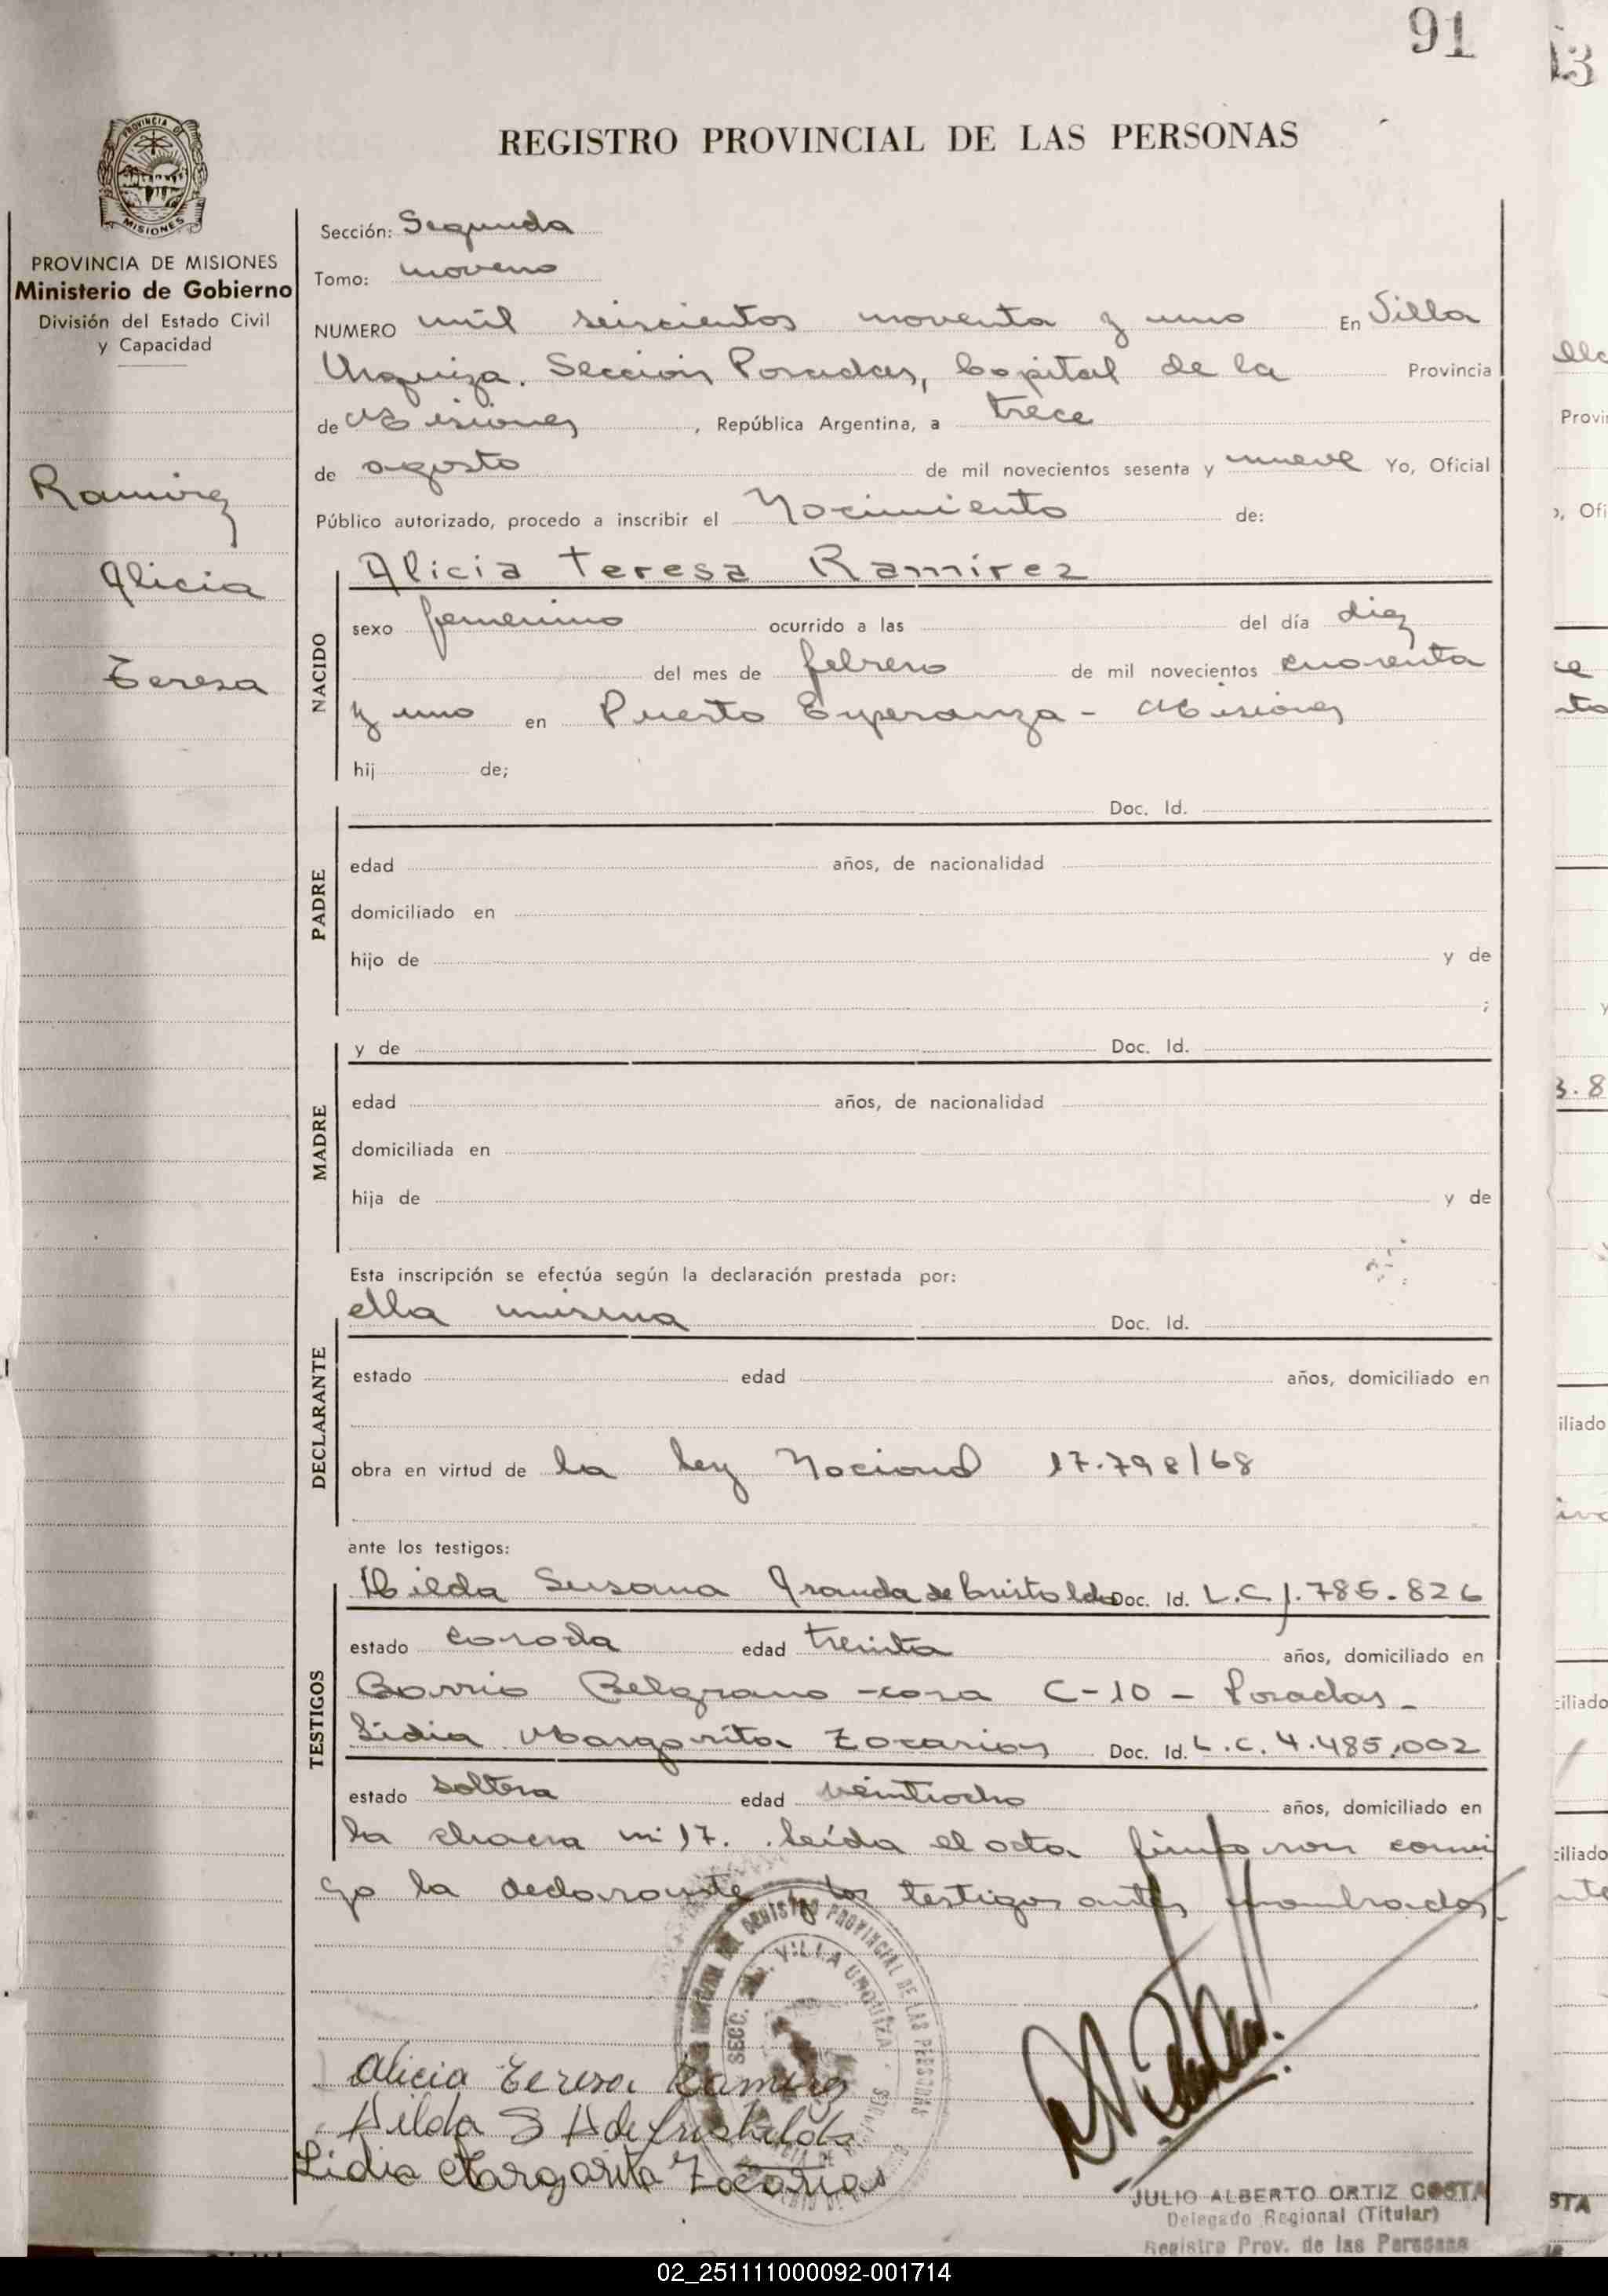 91
REGISTRO PROVINCIAL DE LAS PERSONAS
PROVINCIA DE MISIONES
Ministerio de Gobierno
División del Estado Civil
y Capacidad
Ramirez
Alicia
Teresa
Sección: Segunda
Tomo: noveno
NUMERO mil seiscientos noventa y uno En Villa
Urquiza. Sección Posadas, Capital de la Provincia
de Misiones, República Argentina, a trece
de agosto de mil novecientos sesenta y nueve Yo, Oficial
Público autorizado, procedo a inscribir el Nacimiento de:
NACIDO
Alicia Teresa Ramírez
sexo femenino ocurrido a las del día diez
del mes de febrero de mil novecientos cuarenta
y uno en Puerto Esperanza - Misiones
hij de;
PADRE
Doc. Id.
edad años, de nacionalidad
domiciliado en
hijo de y de
;
MADRE
y de Doc. Id.
edad años, de nacionalidad
domiciliada en
hija de y de
Esta inscripción se efectúa según la declaración prestada por:
DECLARANTE
ella misma Doc. Id.
estado edad años, domiciliado en
obra en virtud de la ley Nacional 17.798/68
ante los testigos:
TESTIGOS
Hilda Susana de Cristaldo Doc. Id. L.C. 1.785.826
estado casada edad treinta años, domiciliado en
Barrio Belgrano - casa C-10 - Posadas -
Lidia Margarita Zacarías Doc. Id. L.C. 4.485.002
estado soltera edad veintiocho años, domiciliado en
la chacra nº 17. leída el acta firmaron conmi
go la declarante y los testigos antes nombrados.
SECC. VILLA URQUIZA
REGISTRO PROVINCIAL DE LAS PERSONAS
Alicia Teresa Ramirez
Hilda S A de Cristaldo
Lidia Margarita Zacarias
JULIO ALBERTO ORTIZ COSTA
Delegado Regional (Titular)
Registro Prov. de las Personas
02_251111000092-001714